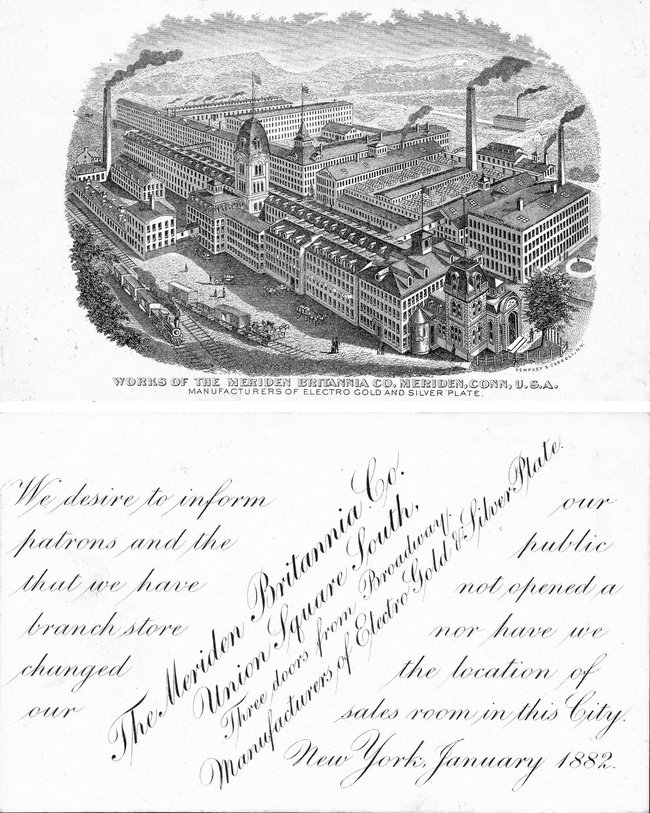 WORKS OF THE MERIDEN BRITANNIA CO. MERIDEN, CONN, U.S.A.
MANUFACTURERS OF ELECTRO GOLD AND SILVER PLATE.
DEMPSEY & CARROLL, N.Y.
We desire to inform our
patrons and the public
that we have not opened a
branch store nor have we
changed the location of
our sales room in this City.
New York, January 1882.
The Meriden Britannia Co.
Union Square South,
Three doors from Broadway.
Manufacturers of Electro Gold & Silver Plate.